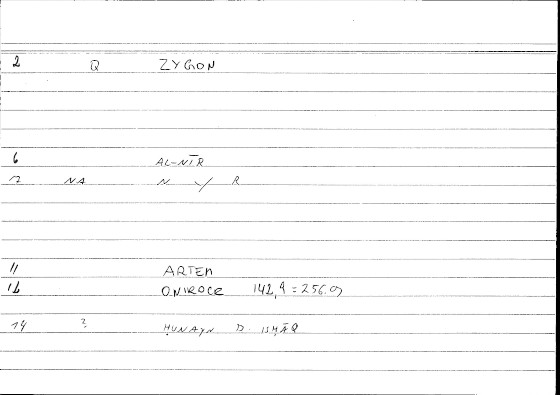 2 Q ZYGON
6 AL-NĪR
12 NA N y R
11 ARTEM
16 ONIROCE 142,9 = 256.9
14 ? ḤUNAYN B. ISḤĀQ